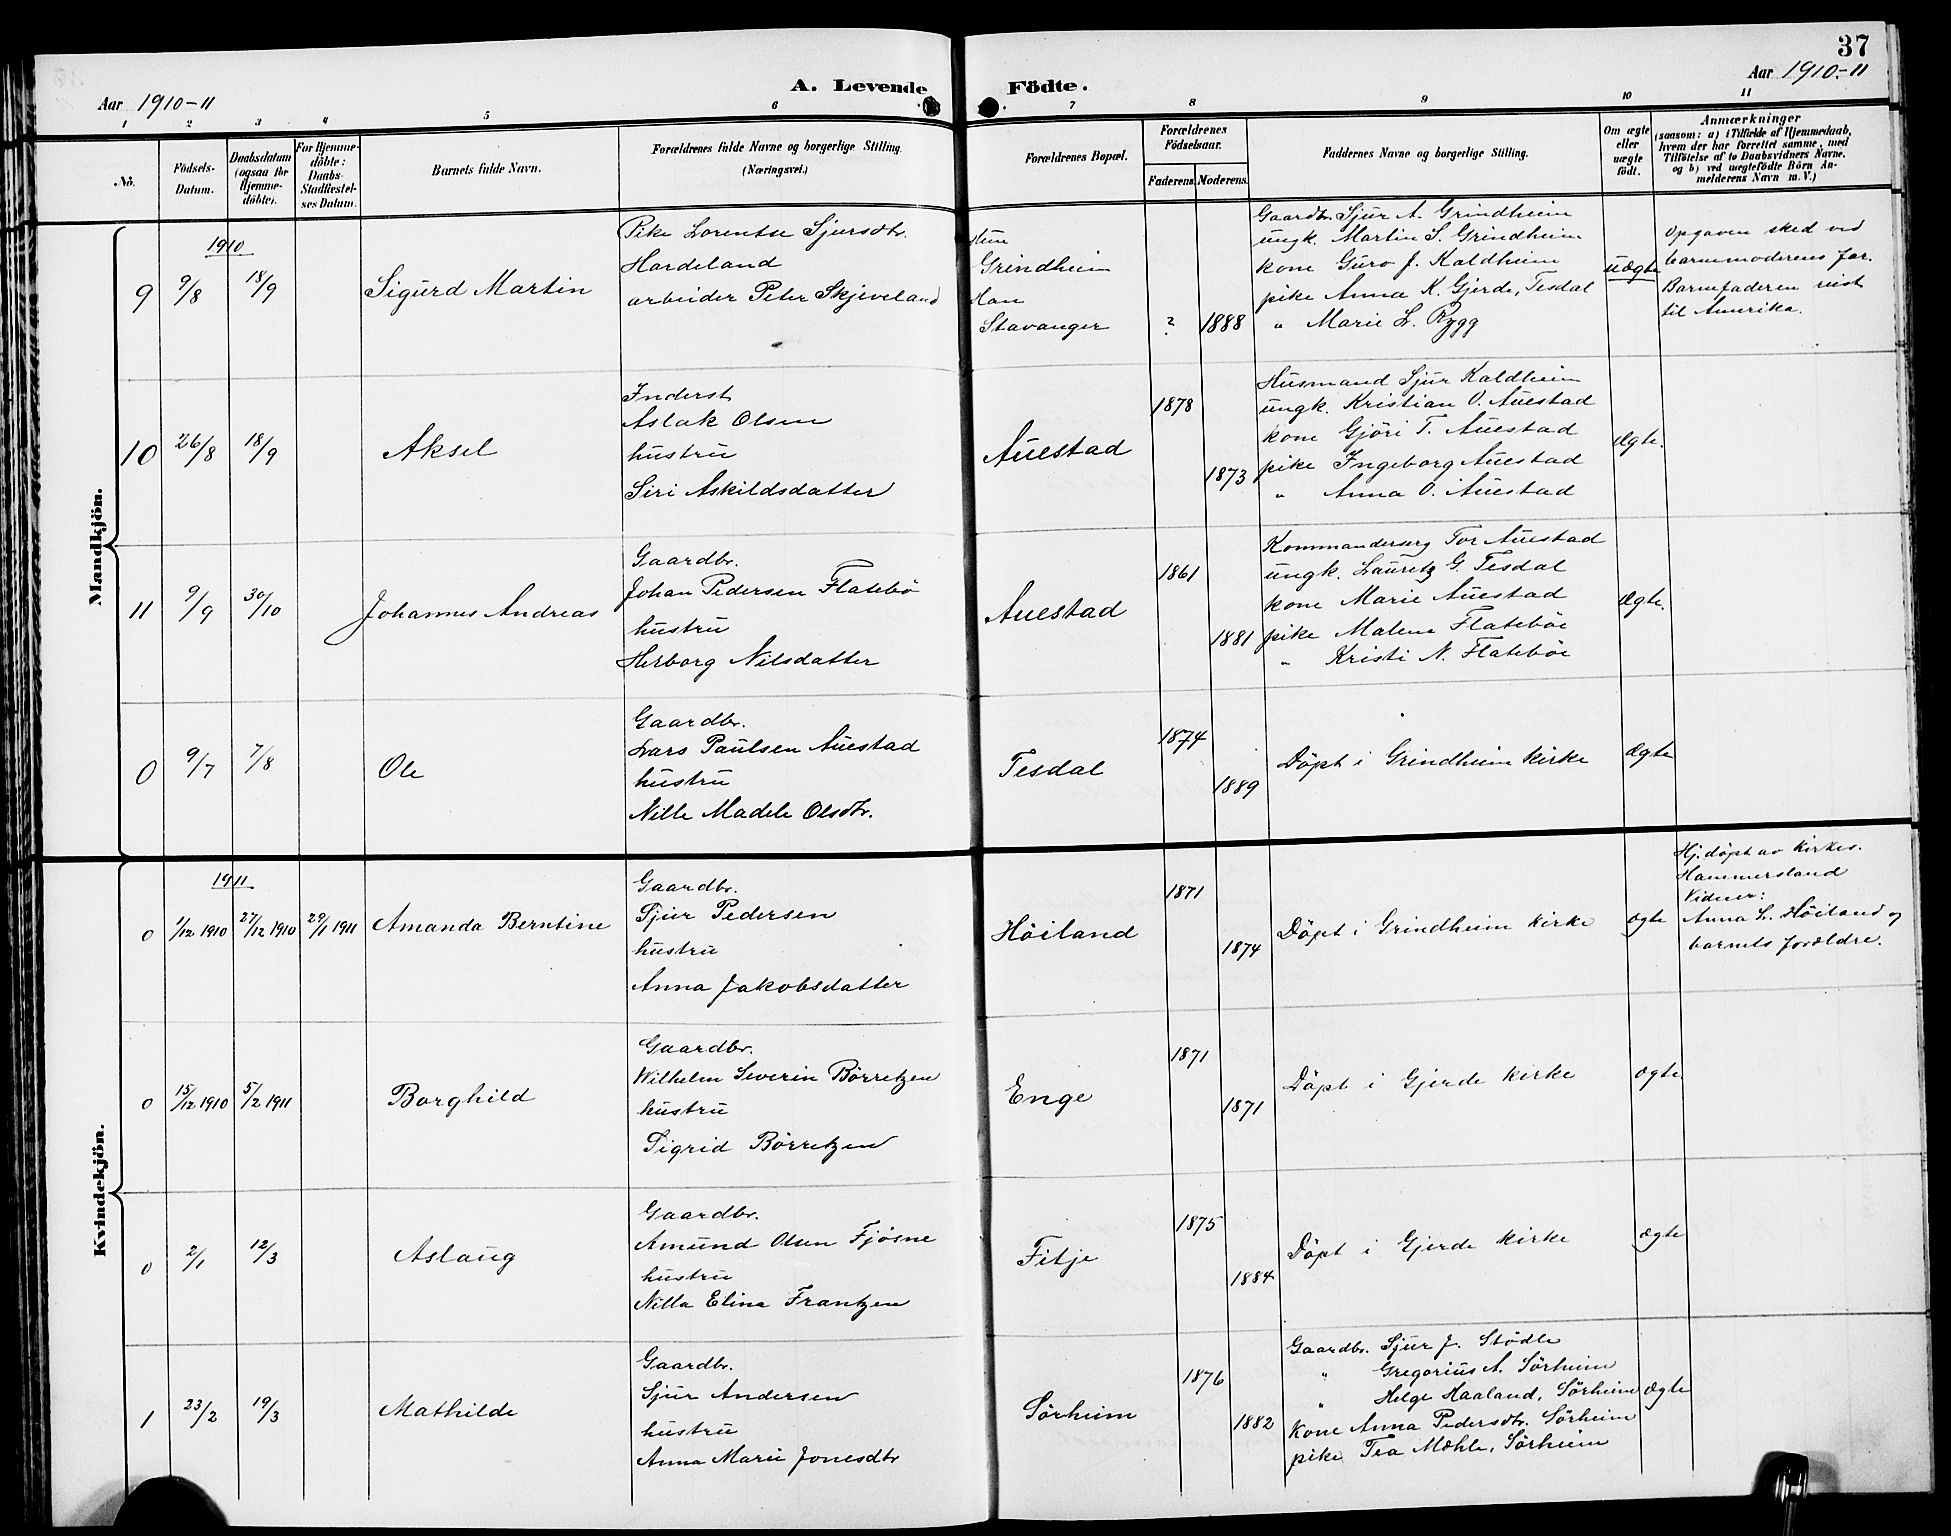 37
Aar 1910-11
A. Levende
Födte.
Aar 1910-11
1 2 3 4 5 6 7 8 9 10 11
No.
Födsels-
Datum.
Daabsdatum
(ogsaa for
Hjemme-
döbte).
For Hjemme-
döbte:
Daabs-
Stadfæstel-
ses Datum.
Barnets fulde Navn.
Forældrenes fulde Navne og borgerlige Stilling.
(Næringsvei.)
Forældrenes Bopæl.
Forældrenes
Födselsaar.
Faderens. Moderens.
Faddernes Navne og borgerlige Stilling.
Om ægte
eller
uægte
födt.
Anmærkninger
(saasom: a) i Tilfælde af Hjemmedaab,
hvem der har forrettet samme, med
Tilföielse af to Daabsvidners Navne.
og b) ved uægtefödte Börn An-
melderens Navn m. V.)
Mandkjön.
1910
9 9/8 18/9
Sigurd Martin
Pike Lorentse Sjursdtr.
Hardeland
arbeider Peter Skjeveland
Hun
Grindheim
Han
Stavanger
? 1888
Gaardbr. Sjur A. Grindheim
ungk. Martin S. Grindheim
kone Guro J. Kaldheim
pike Anna K. Gjerde, Tesdal
" Marie L. Rygg
uægte
Opgaven sked ved
barnemoderens far.
Barnefaderen reist
til Amerika.
10 26/8 18/9
Aksel
Inderst
Aslak Olsen
hustru
Siri Askildsdatter
Auestad
1878
1873
Husmand Sjur Kaldheim
ungk. Kristian O. Auestad
kone Gjöri T. Auestad
pike Ingeborg Auestad
" Anna O. Auestad
Ægte.
11 9/9 30/10
Johannes Andreas
Gaardbr.
Johan Pedersen Flatebö
hustru
Herborg Nilsdatter
Auestad
1861
1881
Kommandersrg Tor Auestad
ungk. Lauritz G. Tesdal
kone Marie Auestad
pike Malene Flateböe
" Kristi N. Flateböe
Ægte.
0 9/7 7/8
Ole
Gaardbr.
Lars Paulsen Auestad
hustru
Nille Madele Olsdtr.
Tesdal
1874
1889
Döpt i Grindheim kirke
Ægte
Kvindekjön.
1911
0 1/12 1910 27/12 1910 29/1 1911
Amanda Berntine
Gaardbr.
Sjur Pedersen
hustru
Anna Jakobsdatter
Höiland
1871
1874
Döpt i Grindheim kirke
ægte
Hj.döpt av kirkes.
Hammersland
Vidner:
Anna L. Höiland og
barnets forældre.
0 15/12 1910 5/2 1911
Borghild
Gaardbr.
Wilhelm Severin Börretzen
hustru
Sigrid Börretzen
Enge
1871
1871
Döpt i Gjerde kirke
ægte
0 2/1 12/3
Aslaug
Gaardbr.
Amund Olsen Fjösne
hustru
Nilla Elina Frantzen
Fitje
1875
1884
Döpt i Gjerde kirke
ægte
1 23/2 19/3
Mathilde
Gaardbr.
Sjur Andersen
hustru
Anna Marie Jonesdtr
Sörheim
1876
1882
Gaardbr. Sjur J. Stödle
" Gregorius A. Sörheim
" Helge Haaland, Sörheim
kone Anna Pedersdtr. Sörheim
pike Tea Mæhle, Sörheim
Ægte